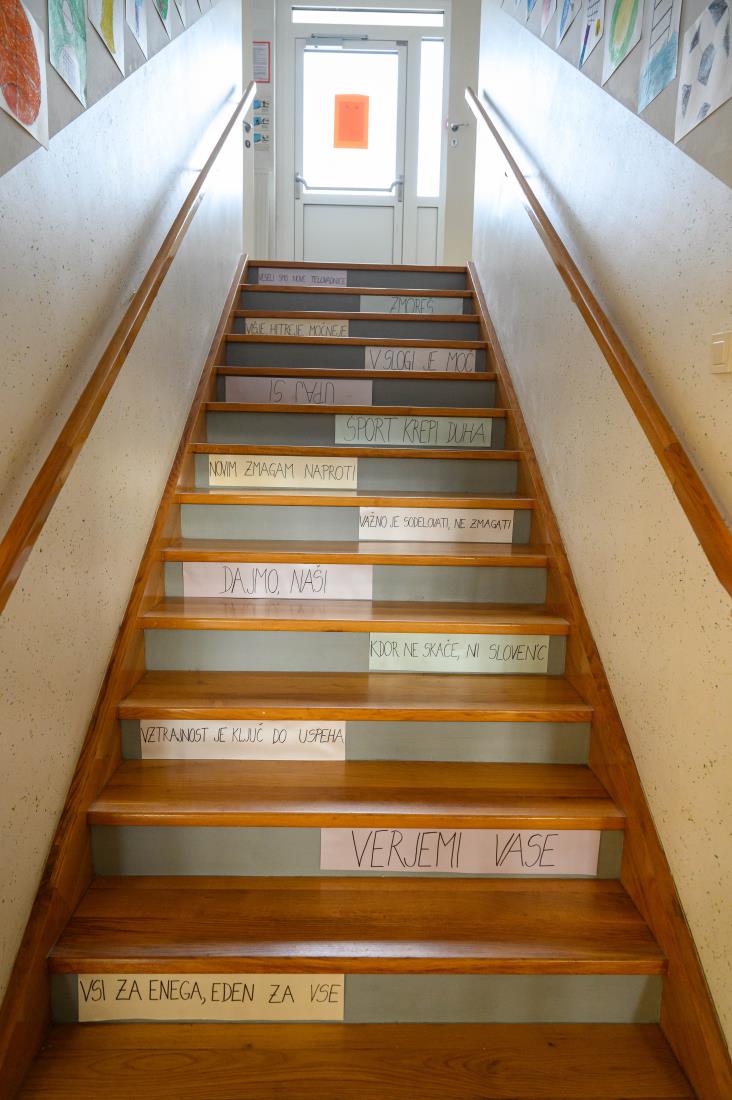 VESELI SMO NOVE TELOVADNICE
ZMOREŠ
VIŠJE, HITREJE, MOČNEJE
V SLOGI JE MOČ
UPAJ SI
ŠPORT KREPI DUHA
NOVIM ZMAGAM NAPROTI
VAŽNO JE SODELOVATI, NE ZMAGATI
DAJMO, NAŠI
KDOR NE SKAČE, NI SLOVENC
VZTRAJNOST JE KLJUČ DO USPEHA
VERJEMI VASE
VSI ZA ENEGA, EDEN ZA VSE